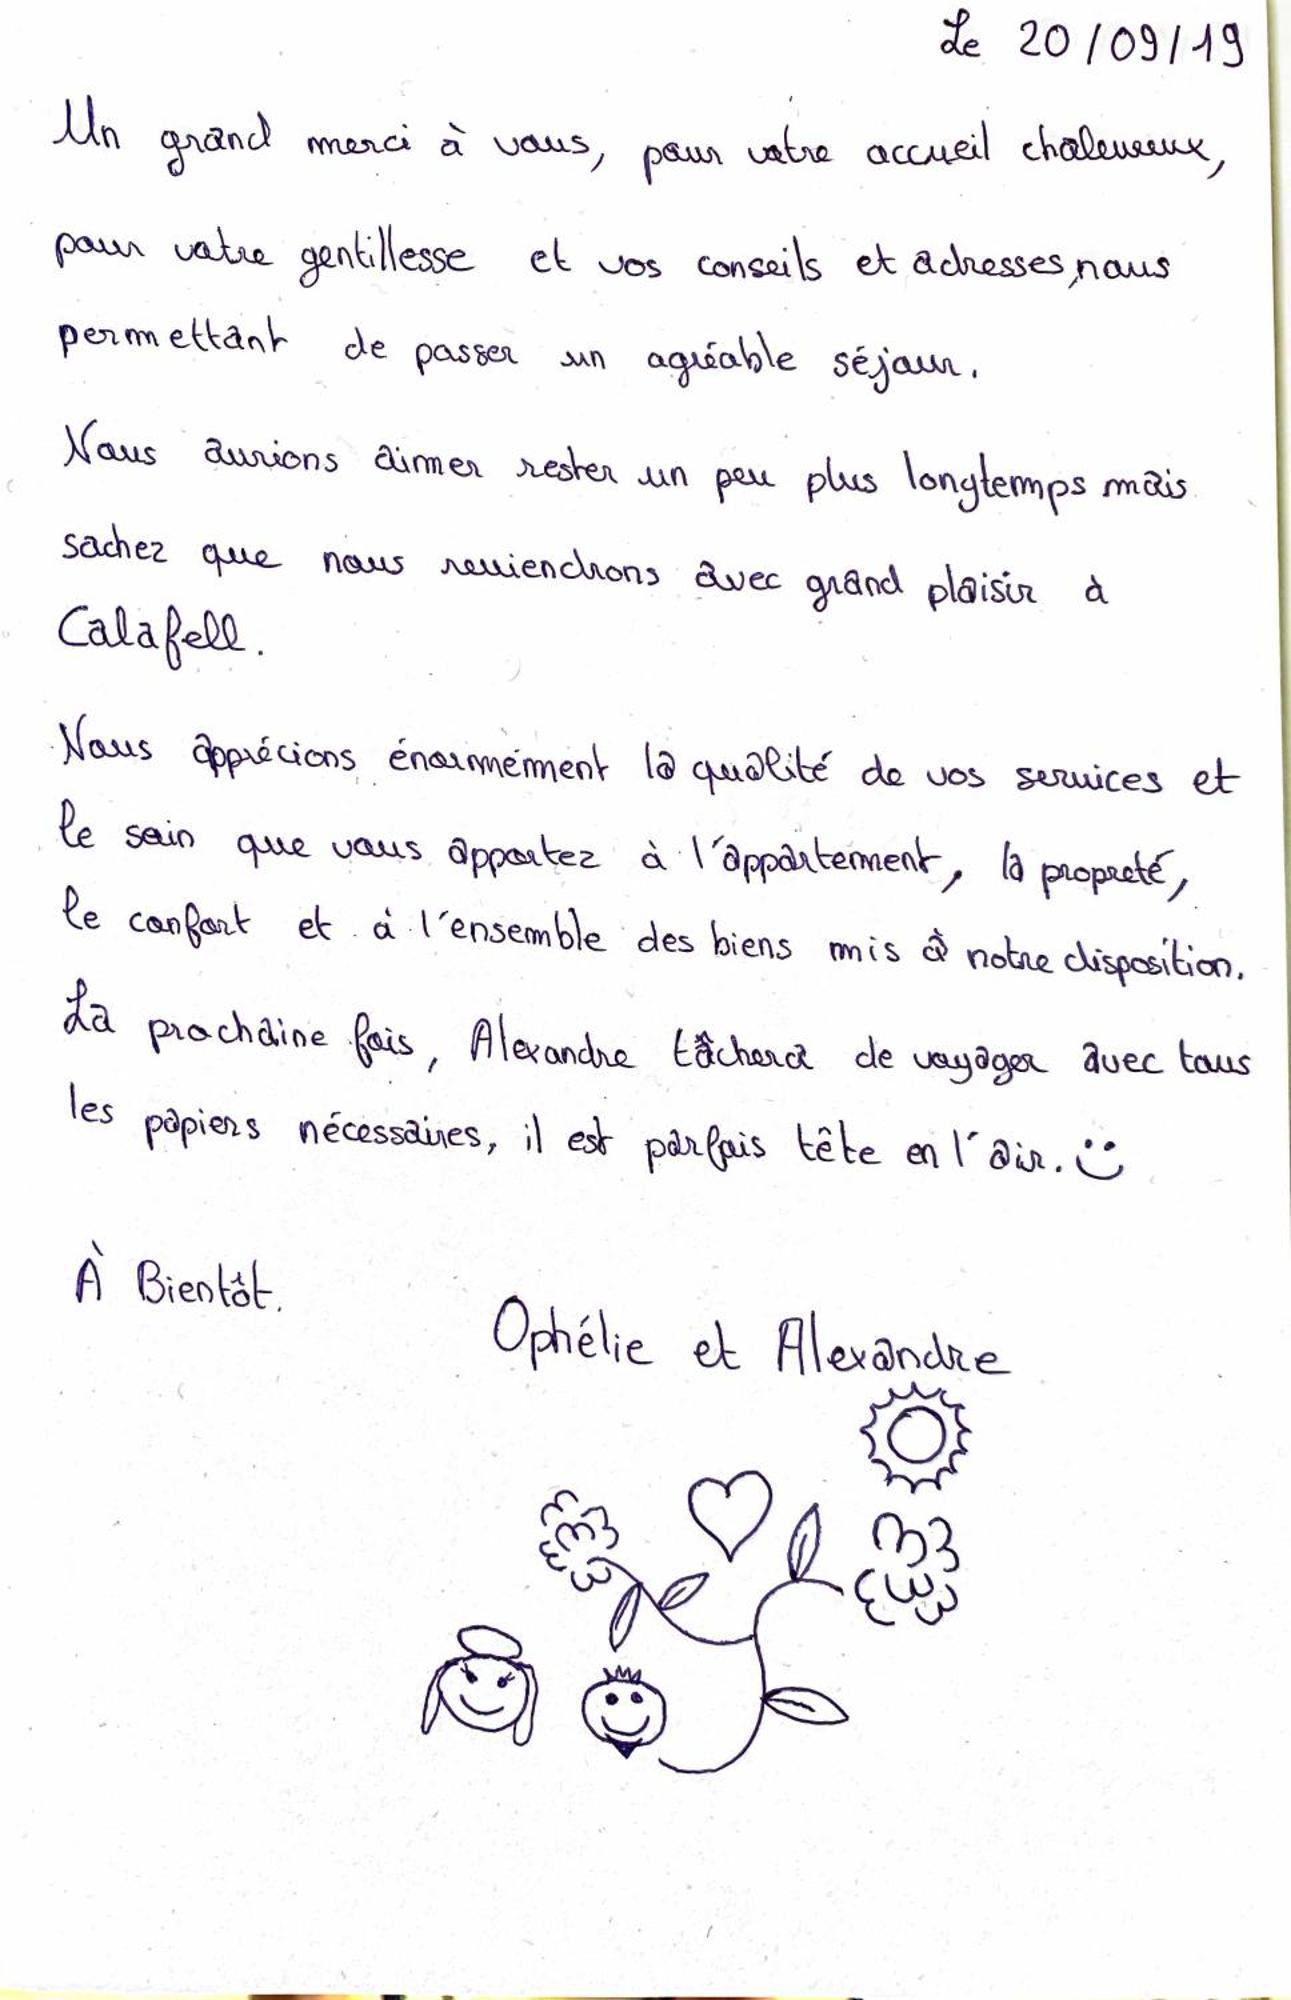 Le 20/09/19
Un grand merci à vous, pour votre accueil chaleureux,
pour votre gentillesse et vos conseils et adresses, nous
permettant de passer un agréable séjour.
Nous aurions aimer rester un peu plus longtemps mais
sachez que nous reviendrons avec grand plaisir à
Calafell.
Nous apprécions énormément la qualité de vos services et
le soin que vous apportez à l'appartement, la propreté,
le confort et à l'ensemble des biens mis à notre disposition.
La prochaine fois, Alexandre tâchera de voyager avec tous
les papiers nécessaires, il est parfois tête en l'air. :)
À Bientôt.
Ophélie et Alexandre